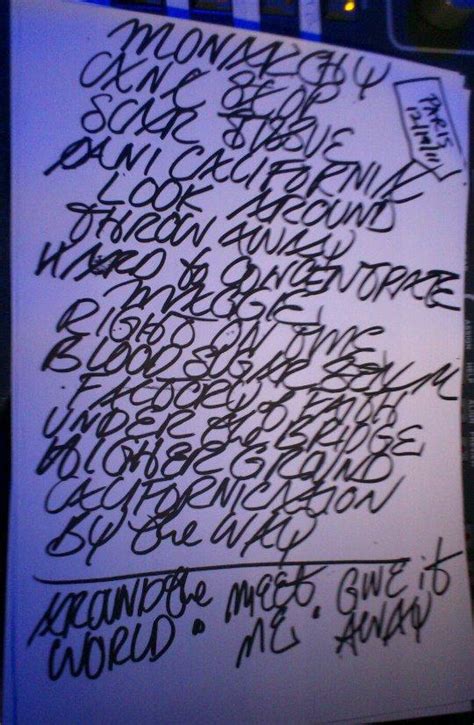 MONARCHY
CAN'T STOP
SCAR TISSUE
PARIS
DANI CALIFORNIA
LOOK AROUND
THROW AWAY
HARD to CONCENTRATE
MAGGIE
RIGHT ON TIME
BLOOD SUGAR
FACTORY of FAITH
UNDER the BRIDGE
HIGHER GROUND
CALIFORNICATION
BY the WAY
AROUND the WORLD • MEET ME • GIVE it AWAY